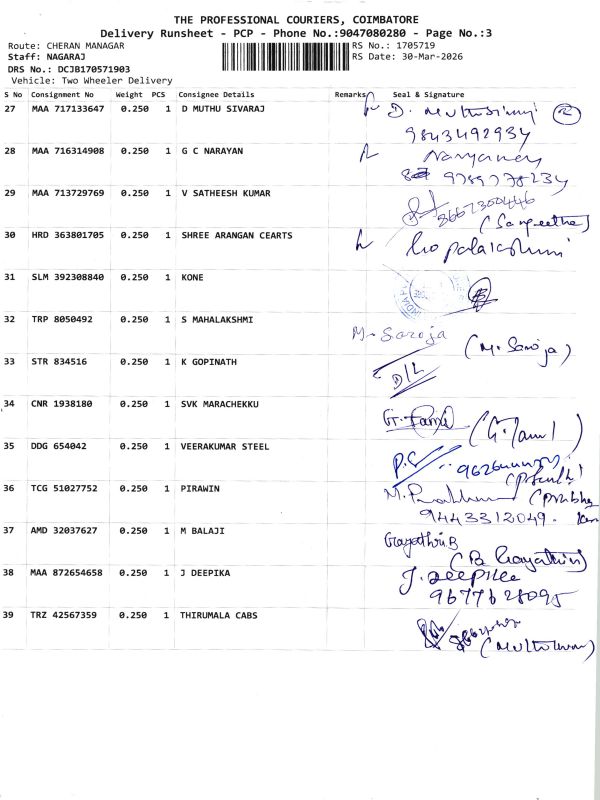 THE PROFESSIONAL COURIERS, COIMBATORE
Delivery Runsheet - PCP - Phone No.:9047080280 - Page No.:3
Route: CHERAN MANAGAR
RS No.: 1705719
Staff: NAGARAJ
RS Date: 30-Mar-2026
DRS No.: DCJB170571903
Vehicle: Two Wheeler Delivery
S No Consignment No Weight PCS Consignee Details Remarks Seal & Signature
27 MAA 717133647 0.250 1 D MUTHU SIVARAJ D.
9843492934
28 MAA 716314908 0.250 1 G C NARAYAN
9789778234
29 MAA 713729769 0.250 1 V SATHEESH KUMAR
(Sangeetha)
30 HRD 363801705 0.250 1 SHREE ARANGAN CEARTS
31 SLM 392308840 0.250 1 KONE
32 TRP 8050492 0.250 1 S MAHALAKSHMI M. Saroja
(M. Saroja)
33 STR 834516 0.250 1 K GOPINATH
D/L
34 CNR 1938180 0.250 1 SVK MARACHEKKU
35 DDG 654042 0.250 1 VEERAKUMAR STEEL
36 TCG 51027752 0.250 1 PIRAWIN
9443312049.
37 AMD 32037627 0.250 1 M BALAJI Gayathri B
38 MAA 872654658 0.250 1 J DEEPIKA J. Deepika
9677628095
39 TRZ 42567359 0.250 1 THIRUMALA CABS